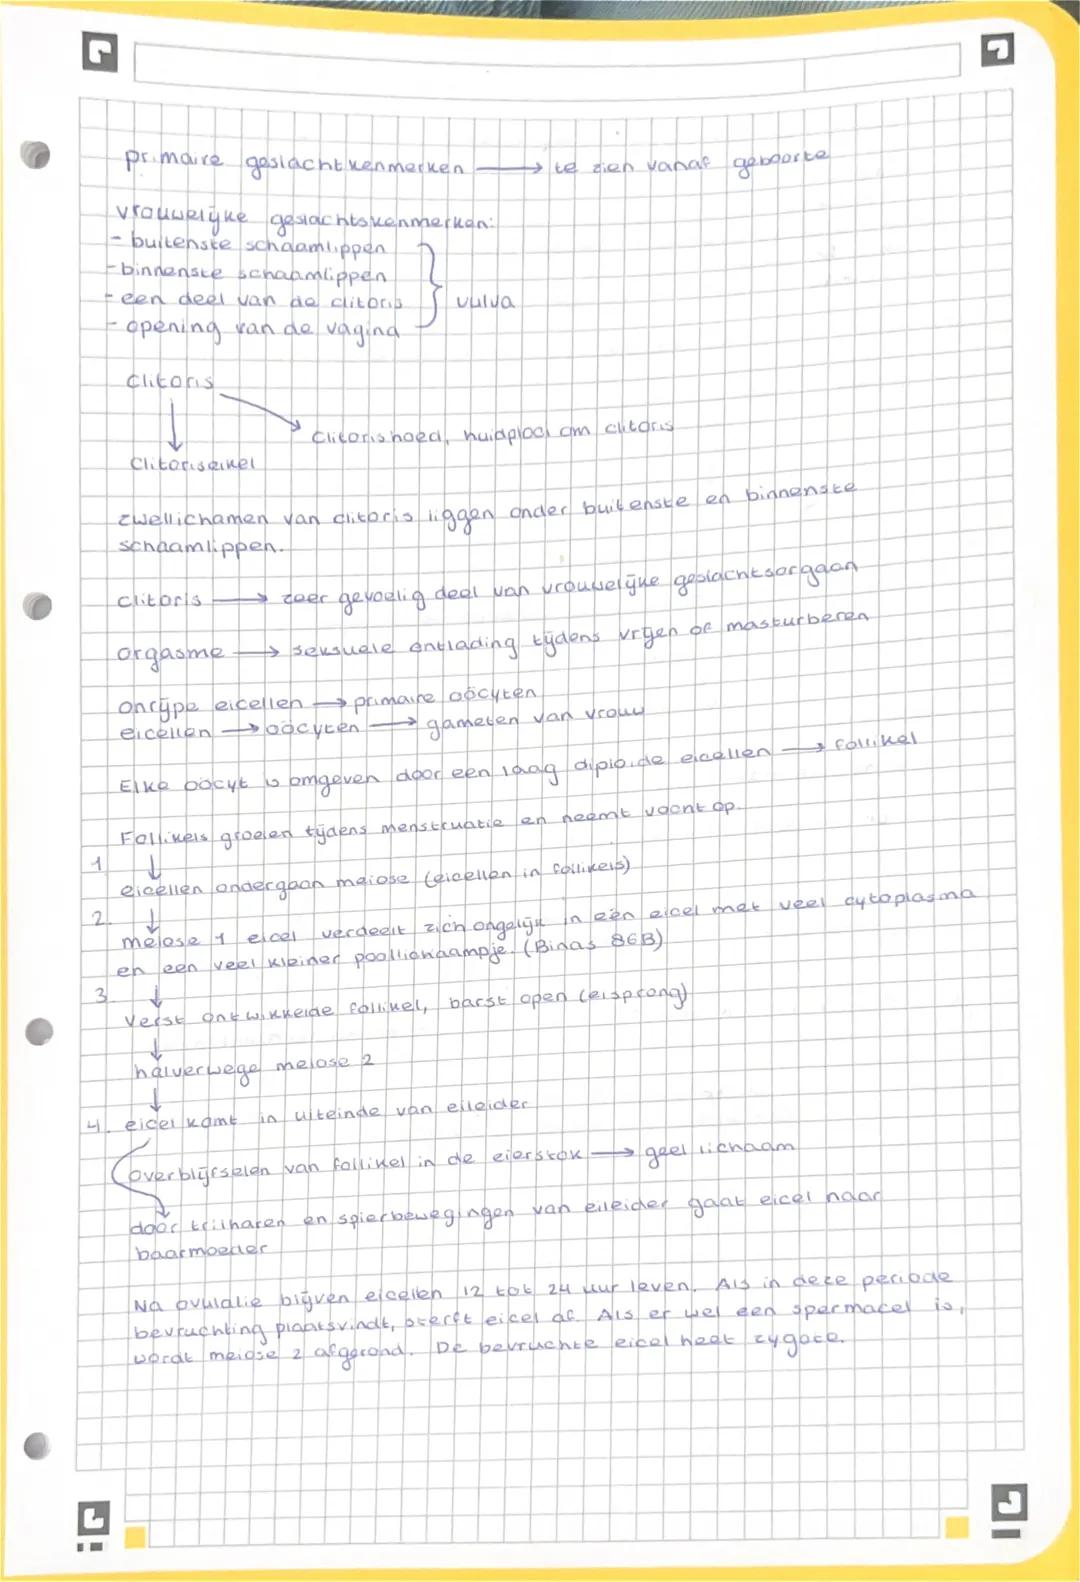 primaire geslachtkenmerken → te zien vanaf geboorte
vrouwelijke geslachtskenmerken:
- buitenste schaamlippen
- binnenste schaamlippen
- een deel van de clitoris } vulva
- opening van de vagina
Clitoris
Clitorishoed, huidplooi om clitoris
Clitoriseikel
zwellichamen van clitoris liggen onder buitenste en binnenste
schaamlippen.
Clitoris → zeer gevoelig deel van vrouwelijke geslachtsorgaan
orgasme → seksuele ontlading tijdens vrijen of masturberen
onrijpe eicellen → primaire oöcyten
eicellen → oöcyten → gameten van vrouw
Elke oöcyt is omgeven door een laag diploïde eicellen → follikel
Follikels groeien tijdens menstruatie en neemt vocht op.
1 ↓
eicellen ondergaan meiose (eicellen in follikels)
2. ↓
meiose 1 eicel verdeelt zich ongelijk in één eicel met veel cytoplasma
en een veel kleiner poollichaampje. (Binas 86B)
3. ↓
Verst ontwikkelde follikel, barst open (eisprong)
↓
halverwege meiose 2
↓
4. eicel komt in uiteinde van eileider
overblijfselen van follikel in de eierstok → geel lichaam
door trilharen en spierbewegingen van eileider gaat eicel naar
baarmoeder
Na ovulatie blijven eicellen 12 tot 24 uur leven. Als in deze periode
bevruchting plaatsvindt, sterft eicel af. Als er wel een spermacel is,
wordt meiose 2 afgerond. De bevruchte eicel heet zygote.